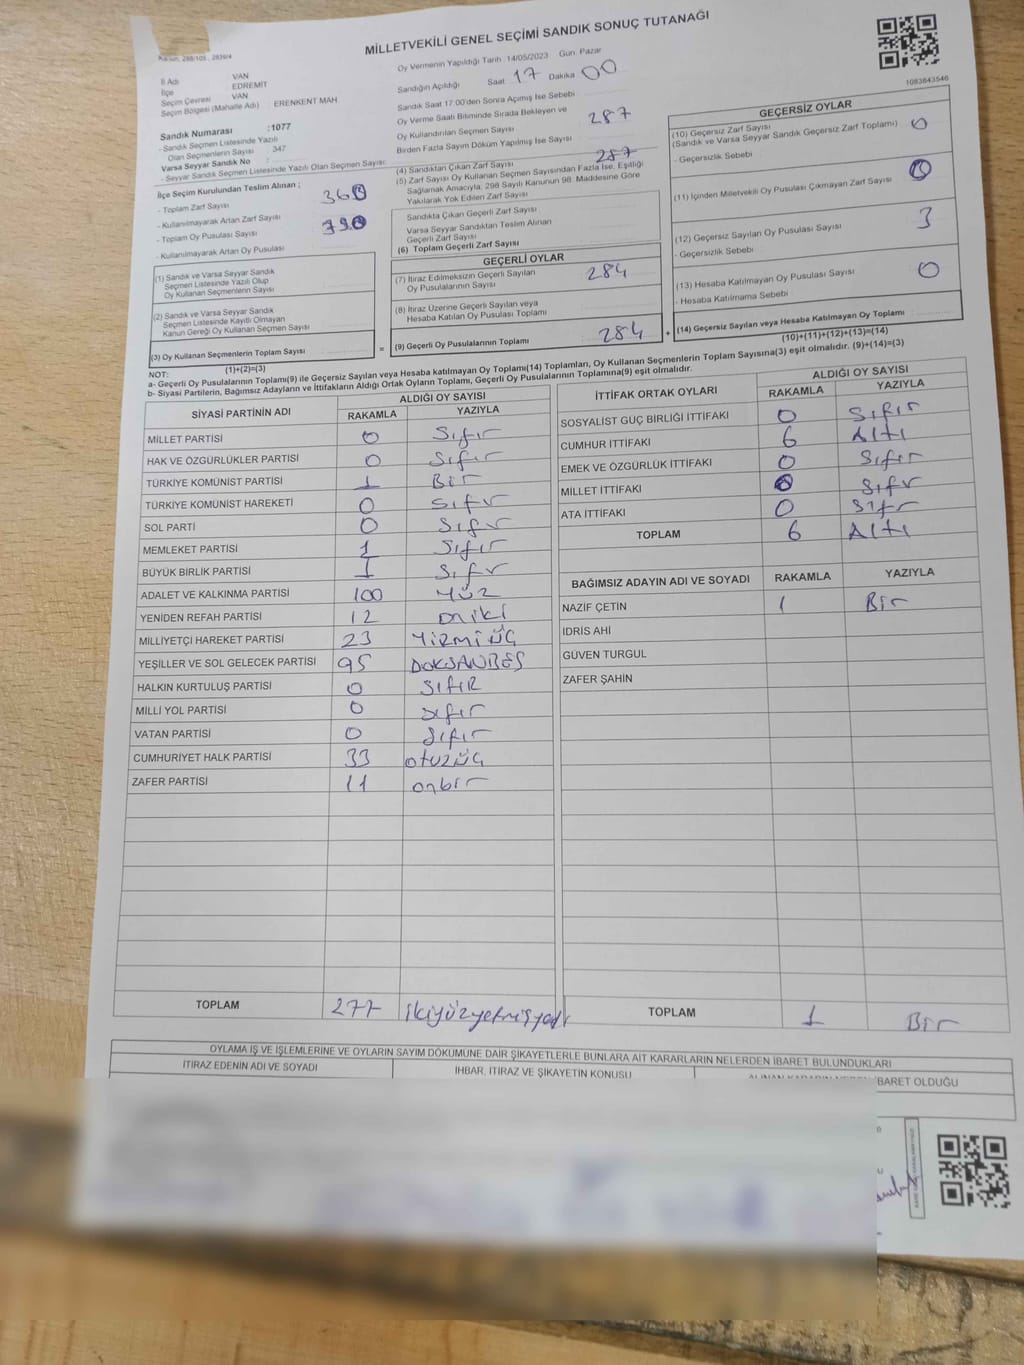 MİLLETVEKİLİ GENEL SEÇİMİ SANDIK SONUÇ TUTANAĞI
Kanun, 298/105 , 2839/4
İl Adı VAN
İlçe EDREMİT
Seçim Çevresi VAN
Seçim Bölgesi (Mahalle Adı) : ERENKENT MAH.
Sandık Numarası :1077
- Sandık Seçmen Listesinde Yazılı
Olan Seçmenlerin Sayısı 347
Varsa Seyyar Sandık No :
- Seyyar Sandık Seçmen Listesinde Yazılı Olan Seçmen Sayısı:
İlçe Seçim Kurulundan Teslim Alınan ;
- Toplam Zarf Sayısı 360
- Kullanılmayarak Artan Zarf Sayısı
- Toplam Oy Pusulası Sayısı
- Kullanılmayarak Artan Oy Pusulası
(1) Sandık ve Varsa Seyyar Sandık
Seçmen Listesinde Yazılı Olup
Oy Kullanan Seçmenlerin Sayısı
(2) Sandık ve Varsa Seyyar Sandık
Seçmen Listesinde Kayıtlı Olmayan
Kanun Gereği Oy Kullanan Seçmen Sayısı
(3) Oy Kullanan Seçmenlerin Toplam Sayısı
(1)+(2)=(3)
Oy Vermenin Yapıldığı Tarih 14/05/2023 Gün: Pazar
Sandığın Açıldığı Saat 17 Dakika 00
Sandık Saat 17.00'den Sonra Açılmış İse Sebebi
Oy Verme Saati Bitiminde Sırada Bekleyen ve
Oy Kullandırılan Seçmen Sayısı 287
Birden Fazla Sayım Döküm Yapılmış İse Sayısı
(4) Sandıktan Çıkan Zarf Sayısı 287
(5) Zarf Sayısı Oy Kullanan Seçmen Sayısından Fazla İse, Eşitliği
Sağlamak Amacıyla, 298 Sayılı Kanunun 98. Maddesine Göre
Yakılarak Yok Edilen Zarf Sayısı
Sandıkta Çıkan Geçerli Zarf Sayısı
Varsa Seyyar Sandıktan Teslim Alınan
Geçerli Zarf Sayısı
(6) Toplam Geçerli Zarf Sayısı
GEÇERLİ OYLAR
(7) İtiraz Edilmeksizin Geçerli Sayılan
Oy Pusulalarının Sayısı 284
(8) İtiraz Üzerine Geçerli Sayılan veya
Hesaba Katılan Oy Pusulası Toplamı
= (9) Geçerli Oy Pusulalarının Toplamı 284 +
1083843546
GEÇERSİZ OYLAR
(10) Geçersiz Zarf Sayısı 0
(Sandık ve Varsa Seyyar Sandık Geçersiz Zarf Toplamı)
- Geçersizlik Sebebi
(11) İçinden Milletvekili Oy Pusulası Çıkmayan Zarf Sayısı 0
(12) Geçersiz Sayılan Oy Pusulası Sayısı 3
- Geçersizlik Sebebi
(13) Hesaba Katılmayan Oy Pusulası Sayısı 0
- Hesaba Katılmama Sebebi
(14) Geçersiz Sayılan veya Hesaba Katılmayan Oy Toplamı
(10)+(11)+(12)+(13)=(14)
NOT:
a- Geçerli Oy Pusulalarının Toplamı(9) ile Geçersiz Sayılan veya Hesaba katılmayan Oy Toplamı(14) Toplamları, Oy Kullanan Seçmenlerin Toplam Sayısına(3) eşit olmalıdır. (9)+(14)=(3)
b- Siyasi Partilerin, Bağımsız Adayların ve İttifakların Aldığı Ortak Oyların Toplamı, Geçerli Oy Pusulalarının Toplamına(9) eşit olmalıdır.
SİYASİ PARTİNİN ADI ALDIĞI OY SAYISI
RAKAMLA YAZIYLA
MİLLET PARTİSİ 0 Sıfır
HAK VE ÖZGÜRLÜKLER PARTİSİ 0 Sıfır
TÜRKİYE KOMÜNİST PARTİSİ 1 Bir
TÜRKİYE KOMÜNİST HAREKETİ 0 Sıfır
SOL PARTİ 0 Sıfır
MEMLEKET PARTİSİ 1 Sıfır
BÜYÜK BİRLİK PARTİSİ 1 Sıfır
ADALET VE KALKINMA PARTİSİ 100 Yüz
YENİDEN REFAH PARTİSİ 12 oniki
MİLLİYETÇİ HAREKET PARTİSİ 23 YİRMİÜÇ
YEŞİLLER VE SOL GELECEK PARTİSİ 95 DOKSANBEŞ
HALKIN KURTULUŞ PARTİSİ 0 SIFIR
MİLLİ YOL PARTİSİ 0 sıfır
VATAN PARTİSİ 0 Sıfır
CUMHURİYET HALK PARTİSİ 33 otuzüç
ZAFER PARTİSİ 11 onbir
TOPLAM 277 ikiyüzyetmişyedi
İTTİFAK ORTAK OYLARI ALDIĞI OY SAYISI
RAKAMLA YAZIYLA
SOSYALİST GÜÇ BİRLİĞİ İTTİFAKI 0 Sıfır
CUMHUR İTTİFAKI 6 Altı
EMEK VE ÖZGÜRLÜK İTTİFAKI 0 Sıfır
MİLLET İTTİFAKI 0 Sıfır
ATA İTTİFAKI 0 Sıfır
TOPLAM 6 Altı
BAĞIMSIZ ADAYIN ADI VE SOYADI RAKAMLA YAZIYLA
NAZİF ÇETİN 1 Bir
İDRİS AHİ
GÜVEN TURGUL
ZAFER ŞAHİN
TOPLAM 1 Bir
OYLAMA İŞ VE İŞLEMLERİNE VE OYLARIN SAYIM DÖKÜMÜNE DAİR ŞİKAYETLERLE BUNLARA AİT KARARLARIN NELERDEN İBARET BULUNDUKLARI
İTİRAZ EDENİN ADI VE SOYADI İHBAR, İTİRAZ VE ŞİKAYETİN KONUSU İBARET OLDUĞU